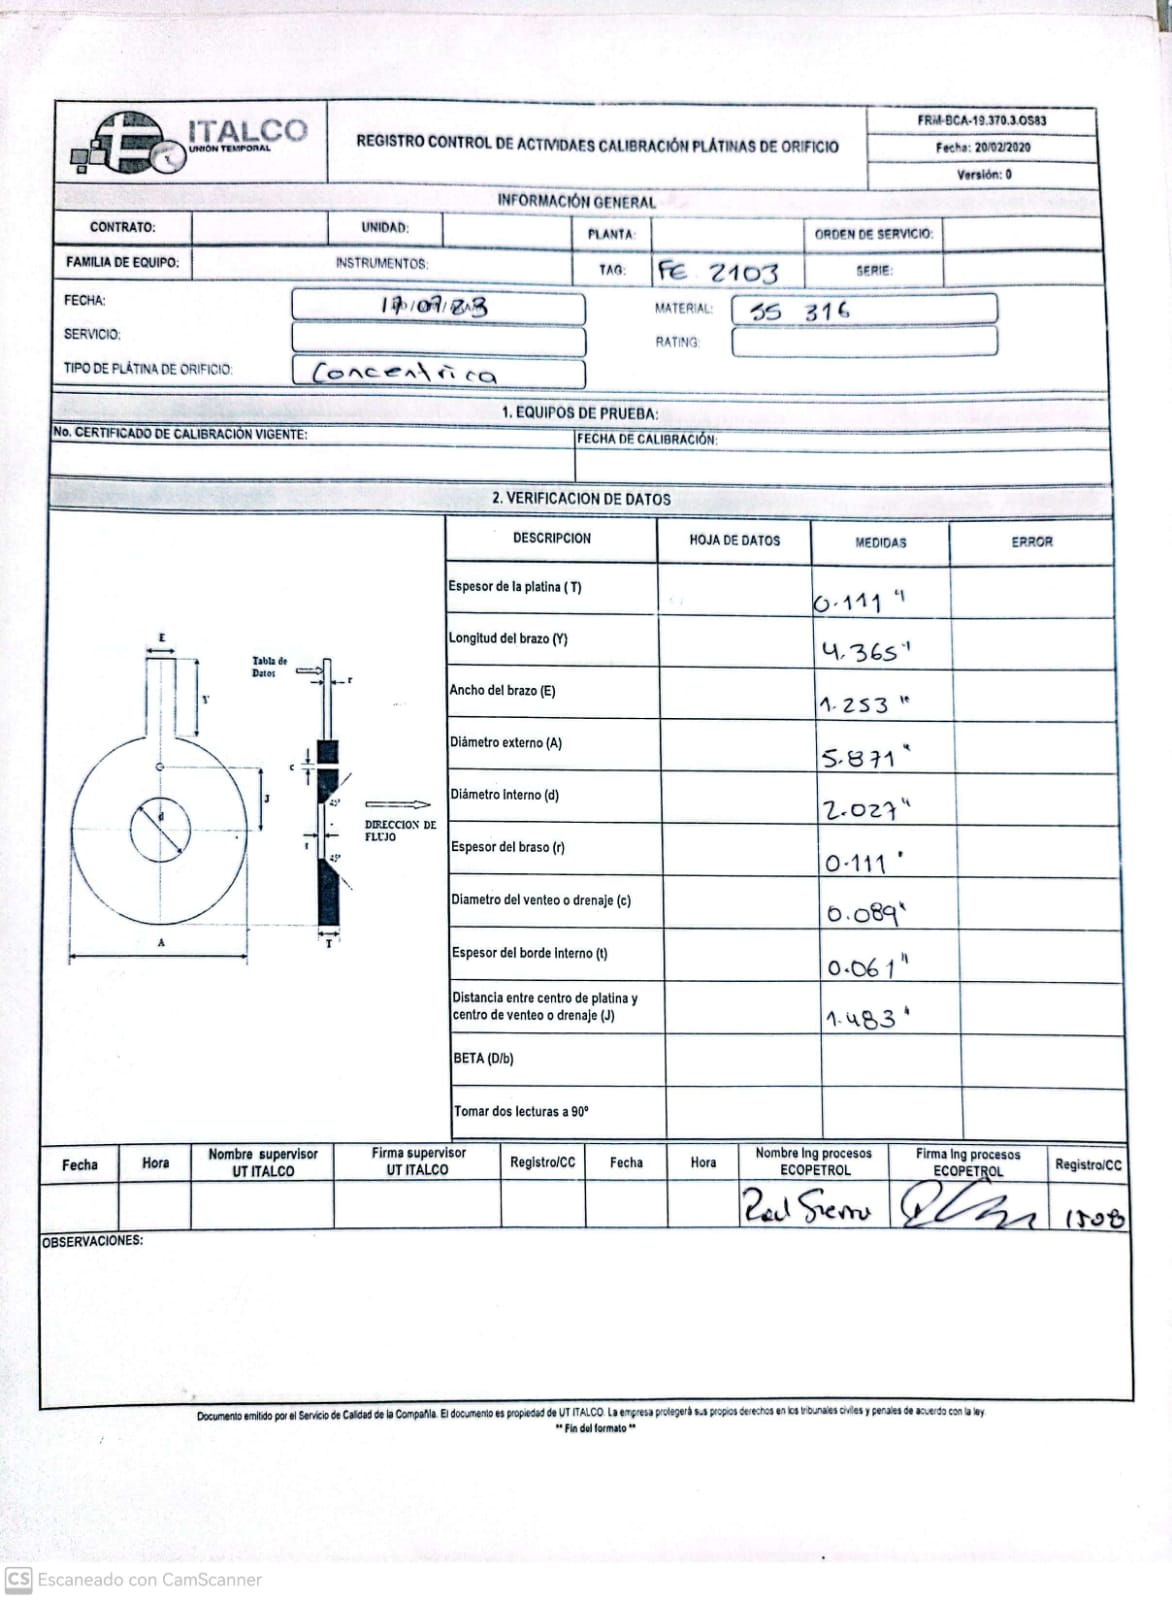 ITALCO
UNIÓN TEMPORAL
REGISTRO CONTROL DE ACTIVIDAES CALIBRACIÓN PLÁTINAS DE ORIFICIO
FRM-BCA-19.370.3.OS83
Fecha: 20/02/2020
Versión: 0
INFORMACIÓN GENERAL
CONTRATO: UNIDAD: PLANTA: ORDEN DE SERVICIO:
FAMILIA DE EQUIPO: INSTRUMENTOS: TAG: FE 2103 SERIE:
FECHA: MATERIAL: SS 316
SERVICIO: RATING:
TIPO DE PLÁTINA DE ORIFICIO: Concentrica
1. EQUIPOS DE PRUEBA:
No. CERTIFICADO DE CALIBRACIÓN VIGENTE: FECHA DE CALIBRACIÓN:
2. VERIFICACION DE DATOS
DESCRIPCION HOJA DE DATOS MEDIDAS ERROR
Espesor de la platina (T) 0.111"
Longitud del brazo (Y) 4.365"
Ancho del brazo (E) 1.253"
Diámetro externo (A) 5.871"
Diámetro Interno (d) 2.027"
Espesor del braso (r) 0.111"
Diametro del venteo o drenaje (c) 0.089"
Espesor del borde Interno (t) 0.061"
Distancia entre centro de platina y
centro de venteo o drenaje (J) 1.483"
BETA (D/b)
Tomar dos lecturas a 90º
E
Tabla de
Datos
r
Y
c
J
45º
d
DIRECCION DE
FLUJO
t
45º
A
T
Fecha Hora Nombre supervisor UT ITALCO Firma supervisor UT ITALCO Registro/CC Fecha Hora Nombre Ing procesos ECOPETROL Firma Ing procesos ECOPETROL Registro/CC
1508
OBSERVACIONES:
Documento emitido por el Servicio de Calidad de la Compañía. El documento es propiedad de UT ITALCO. La empresa protegerá sus propios derechos en los tribunales civiles y penales de acuerdo con la ley.
** Fin del formato **
CS Escaneado con CamScanner